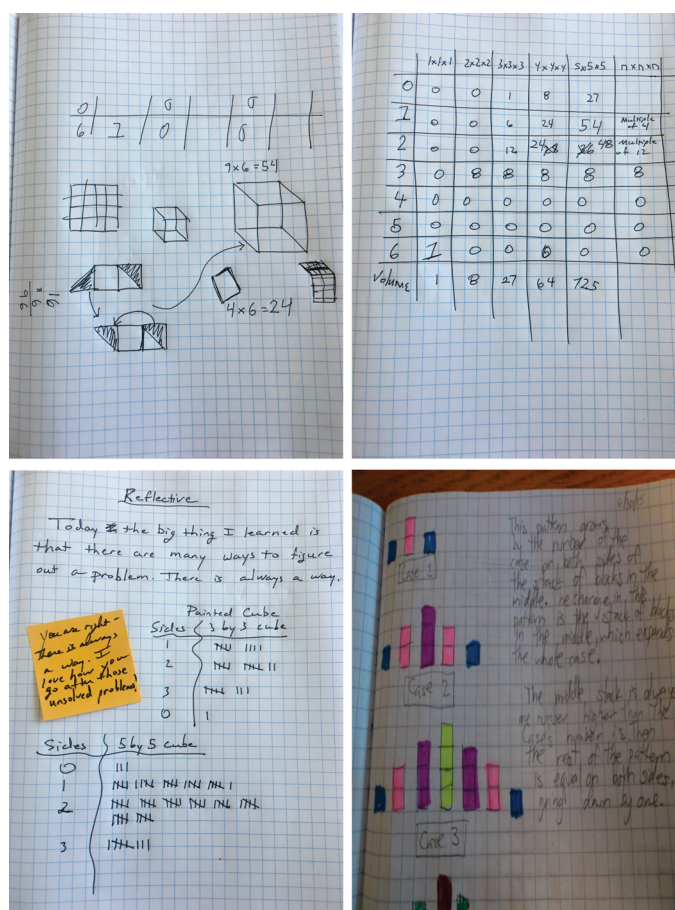 0 0 0
6 1 0 0
9x6=54
4x6=24
96
x 6
91
1x1x1 2x2x2 3x3x3 4x4x4 5x5x5 nxnxn
0 0 0 1 8 27
1 0 0 6 24 54 Multiple of 4
2 0 0 12 24 48 multiple of 12
3 0 8 8 8 8 8
4 0 0 0 0 0 0
5 0 0 0 0 0 0
6 1 0 0 0 0 0
Volume 1 8 27 64 125
Reflective
Today the big thing I learned is
that there are many ways to figure
out a problem. There is always a way.
You are right -
there is always
a way. I
love how you
go after those
unsolved problems!
Painted Cube
Sides 3 by 3 cube
1
2
3
0
Sides 5 by 5 cube
0
1
2
3
This pattern grows
by the number of the
case on both sides of
the stack of blocks in the
middle. in this
pattern is the stack of blocks
in the middle, which expands
the whole case.
The middle stack is always
number higher than the
cases number, is then
the rest of the pattern
is equal on both sides,
going down by one.
Case 1
Case 2
Case 3